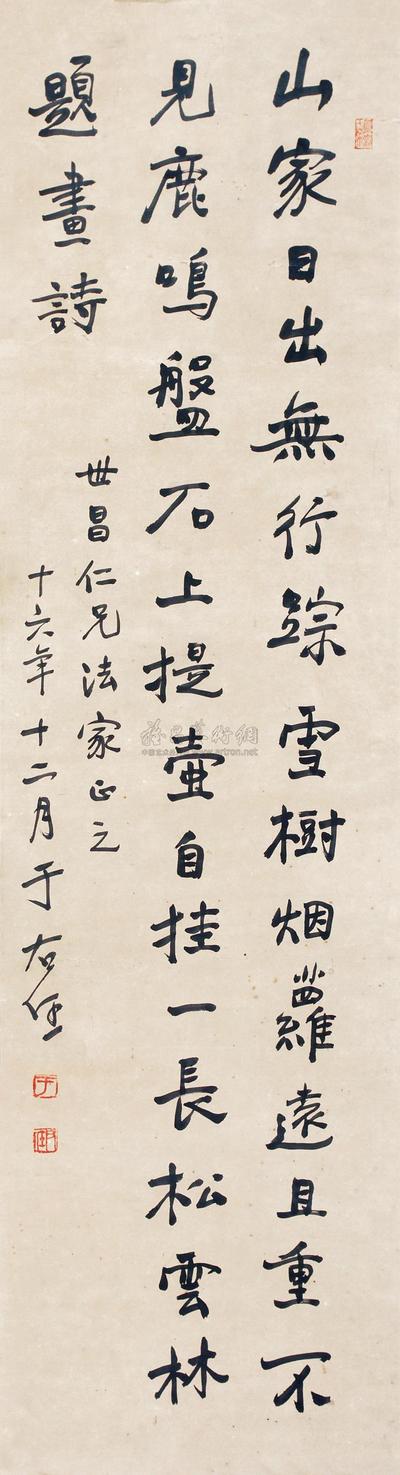 山家日出無行踪雪樹烟蘿遠且重不
見鹿鳴盤石上提壺自挂一長松雲林
題畫詩
世昌仁兄法家正之
十六年十二月于右任
www.artron.net